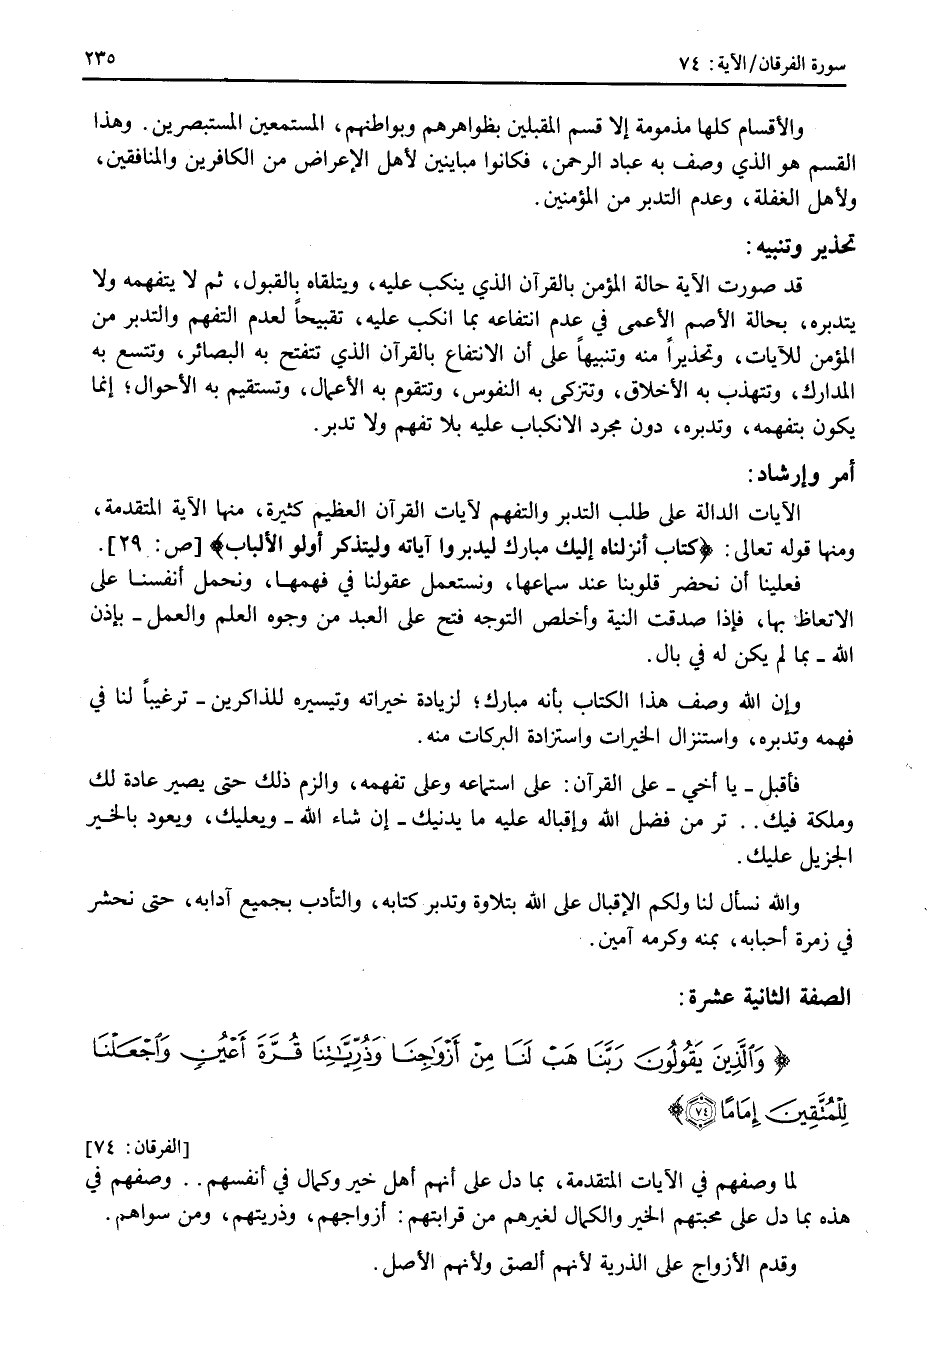 سورة الفرقان/الآية: ٧٤
٢٣٥
والأقسام كلها مذمومة إلا قسم المقبلين بظواهرهم وبواطنهم، المستمعين المستبصرين. وهذا
القسم هو الذي وصف به عباد الرحمن، فكانوا مباينين لأهل الإعراض من الكافرين والمنافقين،
ولأهل الغفلة، وعدم التدبر من المؤمنين.
تحذير وتنبيه:
قد صورت الآية حالة المؤمن بالقرآن الذي ينكب عليه، ويتلقاه بالقبول، ثم لا يتفهمه ولا
يتدبره، بحالة الأصم الأعمى في عدم انتفاعه بما انكب عليه، تقبيحاً لعدم التفهم والتدبر من
المؤمن للآيات، وتحذيراً منه وتنبيهاً على أن الانتفاع بالقرآن الذي تتفتح به البصائر، وتتسع به
المدارك، وتتهذب به الأخلاق، وتتزكى به النفوس، وتتقوم به الأعمال، وتستقيم به الأحوال؛ إنما
يكون بتفهمه، وتدبره، دون مجرد الانكباب عليه بلا تفهم ولا تدبر.
أمر وإرشاد:
الآيات الدالة على طلب التدبر والتفهم لآيات القرآن العظيم كثيرة، منها الآية المتقدمة،
ومنها قوله تعالى: ﴿كتاب أنزلناه إليك مبارك ليدبروا آياته وليتذكر أولو الألباب﴾ [ص: ٢٩].
فعلينا أن نحضر قلوبنا عند سماعها، ونستعمل عقولنا في فهمها، ونحمل أنفسنا على
الاتعاظ بها، فإذا صدقت النية وأخلص التوجه فتح على العبد من وجوه العلم والعمل ـ بإذن
الله ـ بما لم يكن له في بال.
وإن الله وصف هذا الكتاب بأنه مبارك؛ لزيادة خيراته وتيسيره للذاكرين ـ ترغيباً لنا في
فهمه وتدبره، واستنزال الخيرات واستزادة البركات منه.
فأقبل ـ يا أخي ـ على القرآن: على استماعه وعلى تفهمه، والزم ذلك حتى يصير عادة لك
وملكة فيك.. تر من فضل الله وإقباله عليه ما يدنيك ـ إن شاء الله ـ ويعليك، ويعود بالخير
الجزيل عليك.
والله نسأل لنا ولكم الإقبال على الله بتلاوة وتدبر كتابه، والتأدب بجميع آدابه، حتى نحشر
في زمرة أحبابه، بمنه وكرمه آمين.
الصفة الثانية عشرة:
﴿وَٱلَّذِينَ يَقُولُونَ رَبَّنَا هَبْ لَنَا مِنْ أَزْوَٰجِنَا وَذُرِّيَّٰتِنَا قُرَّةَ أَعْيُنٍ وَٱجْعَلْنَا
لِلْمُتَّقِينَ إِمَامًا ٧٤﴾
[الفرقان: ٧٤]
لما وصفهم في الآيات المتقدمة، بما دل على أنهم أهل خير وكمال في أنفسهم.. وصفهم في
هذه بما دل على محبتهم الخير والكمال لغيرهم من قرابتهم: أزواجهم، وذريتهم، ومن سواهم.
وقدم الأزواج على الذرية لأنهم ألصق ولأنهم الأصل.